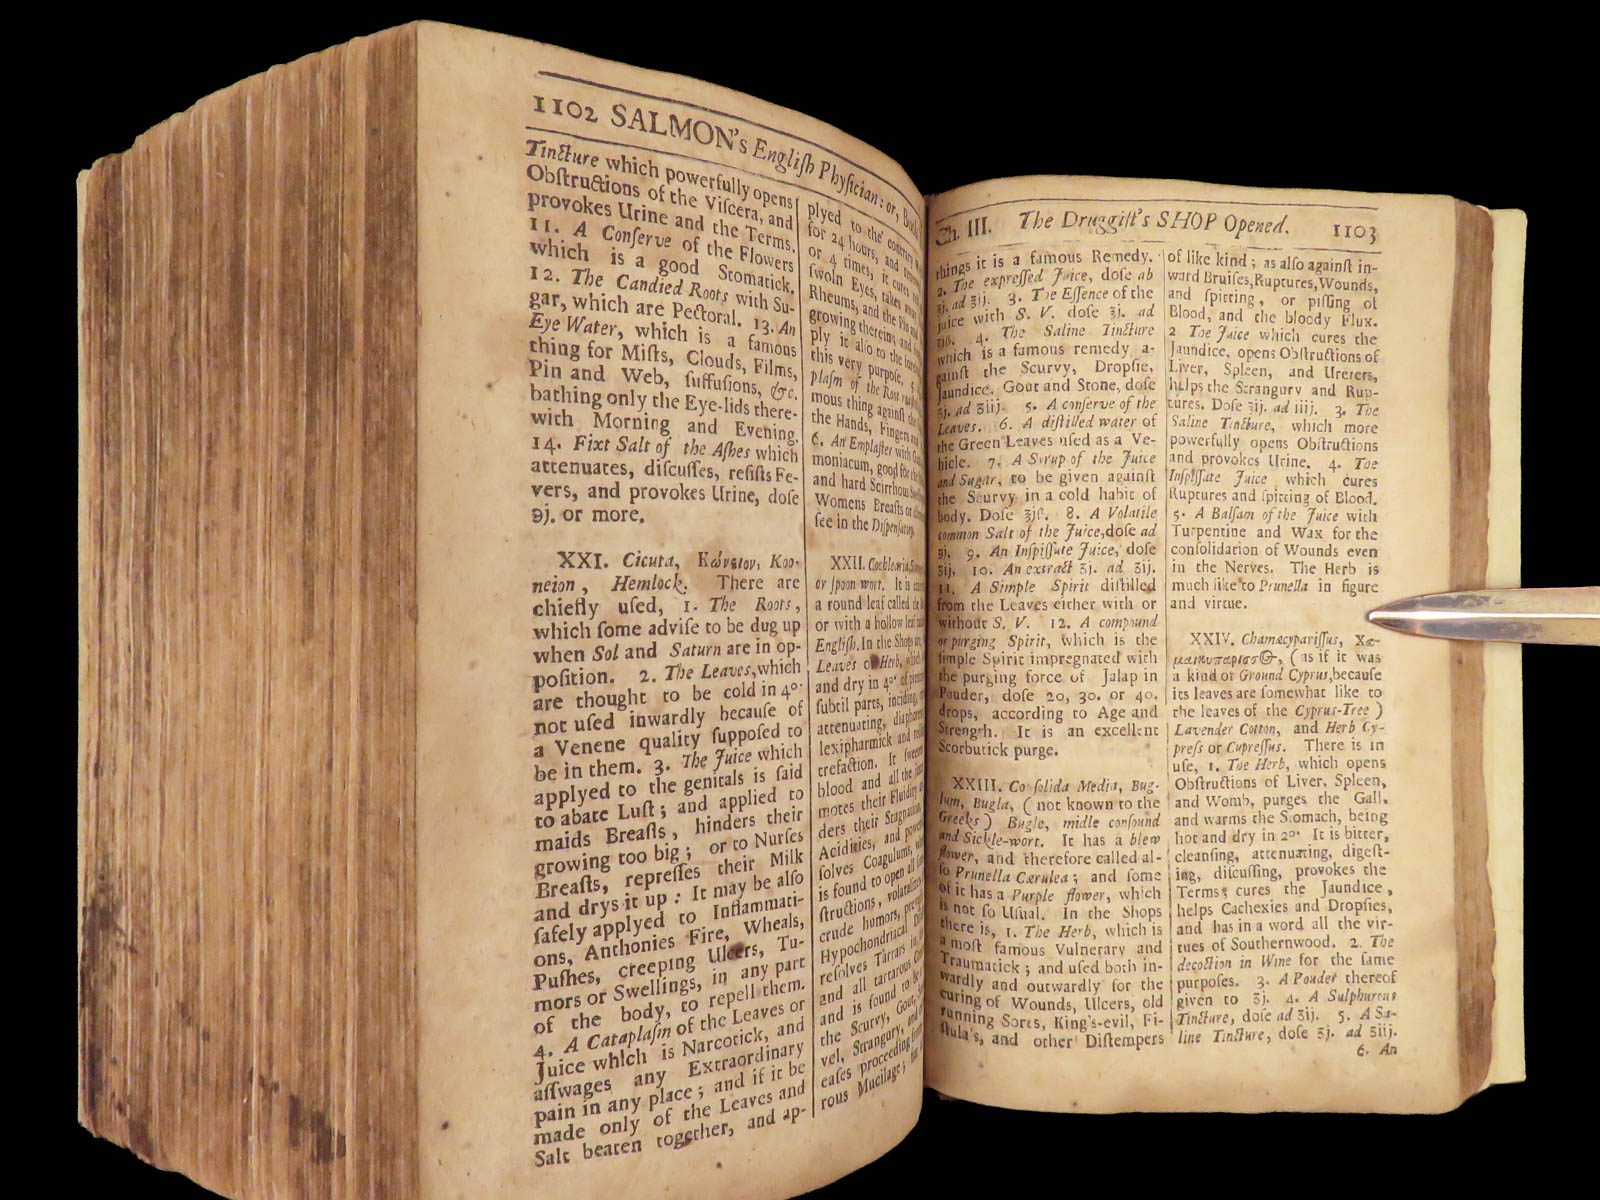 1102 SALMON's Engliſh Phyſician: or,
Tincture which powerfully opens
Obſtructions of the Viſcera, and
provokes Urine and the Terms.
11. A Conſerve of the Flowers
which is a good Stomatick.
12. The Candied Roots with Su-
gar, which are Pectoral. 13. An
Eye Water, which is a famous
thing for Miſts, Clouds, Films,
Pin and Web, ſuffuſions, &c.
bathing only the Eye-lids there-
with Morning and Evening.
14. Fixt Salt of the Aſhes which
attenuates, diſcuſſes, reſiſts Fe-
vers, and provokes Urine, doſe
℈j. or more.
XXI. Cicuta, Κώνειον, Koo-
neion, Hemlock. There are
chiefly uſed, 1. The Roots,
which ſome adviſe to be dug up
when Sol and Saturn are in op-
poſition. 2. The Leaves, which
are thought to be cold in 4°.
not uſed inwardly becauſe of
a Venene quality ſuppoſed to
be in them. 3. The Juice which
applyed to the genitals is ſaid
to abate Luſt; and applied to
maids Breaſts, hinders their
growing too big; or to Nurſes
Breaſts, repreſſes their Milk
and drys it up: It may be alſo
ſafely applyed to Inflammati-
ons, Anthonies Fire, Wheals,
Puſhes, creeping Ulcers, Tu-
mors or Swellings, in any part
of the body, to repell them.
4. A Cataplaſm of the Leaves or
Juice which is Narcotick, and
aſſwages any Extraordinary
pain in any place; and if it be
made only of the Leaves and
Salt beaten together, and ap-
plyed to the contrary
for 24 hours, and
or 4 times, it cures
ſwoln Eyes, takes away
Rheums, and the Pin and
growing therein; and
ply it alſo to the
this very purpoſe. 5.
plaſm of the Root
mous thing againſt the
the Hands, Fingers and
6. An Emplaſter with
moniacum, good for the
and hard Scirrhous
Womens Breaſts or
ſee in the Diſpenſatory.
XXII. Cochlearia,
or ſpoon-wort. It is
a round leaf called the
or with a hollow leaf
Engliſh. In the Shops
Leaves or Herb, which
and dry in 4°. of
ſubtil parts, inciding,
attenuating,
lexipharmick and
trefaction. It
blood and all the
motes their Fluidity
ders their Stagnation,
Acidities, and
ſolves Coagulums,
is found to open all
ſtructions,
crude humors,
Hypochondriacal
reſolves Tartars in
and all tartarous
and is found to be
the Scurvy, Gout,
vel, Strangury, and
eaſes proceeding from
rous Mucilage;
Ch. III. The Druggiſt's SHOP Opened. 1103
things it is a famous Remedy.
2. The expreſſed Juice, doſe ab
ʒj. ad ʒij. 3. The Eſſence of the
Juice with S. V. doſe ʒj. ad
ʒiß. 4. The Saline Tincture
which is a famous remedy a-
gainſt the Scurvy, Dropſie,
Jaundice, Gout and Stone, doſe
ʒj. ad ʒiij. 5. A conſerve of the
Leaves. 6. A diſtilled water of
the Green Leaves uſed as a Ve-
hicle. 7. A Syrup of the Juice
and Sugar, to be given againſt
the Scurvy in a cold habit of
body. Doſe ʒjß. 8. A Volatile
common Salt of the Juice, doſe ad
℈j. 9. An Inſpiſſate Juice, doſe
ʒij. 10. An extract ʒj. ad ʒij.
11. A Simple Spirit diſtilled
from the Leaves either with or
without S. V. 12. A compound
or purging Spirit, which is the
ſimple Spirit impregnated with
the purging force of Jalap in
Pouder, doſe 20, 30. or 40.
drops, according to Age and
Strength. It is an excellent
Scorbutick purge.
XXIII. Conſolida Media, Bug-
lum, Bugla, (not known to the
Greeks) Bugle, midle conſound
and Sickle-wort. It has a blew
flower, and therefore called al-
ſo Prunella Cærulea; and ſome
of it has a Purple flower, which
is not ſo Uſual. In the Shops
there is, 1. The Herb, which is
a moſt famous Vulnerary and
Traumatick; and uſed both in-
wardly and outwardly for the
curing of Wounds, Ulcers, old
running Sores, King's-evil, Fi-
ſtula's, and other Diſtempers
of like kind; as alſo againſt in-
ward Bruiſes, Ruptures, Wounds,
and ſpitting, or piſſing of
Blood, and the bloody Flux.
2 The Juice which cures the
Jaundice, opens Obſtructions of
Liver, Spleen, and Ureters,
helps the Strangury and Rup-
tures. Doſe ʒij. ad iiij. 3. The
Saline Tincture, which more
powerfully opens Obſtructions
and provokes Urine. 4. The
Inſpiſſate Juice which cures
Ruptures and ſpitting of Blood.
5. A Balſam of the Juice with
Turpentine and Wax for the
conſolidation of Wounds even
in the Nerves. The Herb is
much like to Prunella in figure
and virtue.
XXIV. Chamæcypariſſus, Χα-
μαικυπαρισσος, (as if it was
a kind of Ground Cyprus, becauſe
its leaves are ſomewhat like to
the leaves of the Cyprus-Tree)
Lavender Cotton, and Herb Cy-
preſs or Cupreſſus. There is in
uſe, 1. The Herb, which opens
Obſtructions of Liver, Spleen,
and Womb, purges the Gall,
and warms the Stomach, being
hot and dry in 2°. It is bitter,
cleanſing, attenuating, digeſt-
ing, diſcuſſing, provokes the
Terms; cures the Jaundice,
helps Cachexies and Dropſies,
and has in a word all the vir-
tues of Southernwood. 2. The
decoction in Wine for the ſame
purpoſes. 3. A Pouder thereof
given to ʒj. 4. A Sulphurous
Tincture, doſe ad ʒij. 5. A Sa-
line Tincture, doſe ʒj. ad ʒiij.
6. An